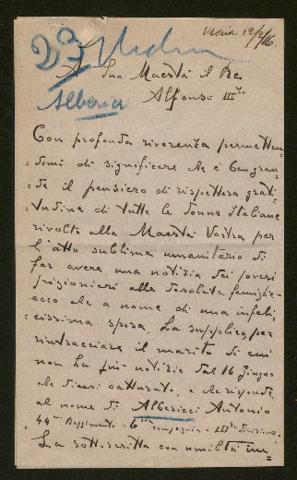 12/7/16
23
A Sua Maestà il Re
Alfonso III
Albania
Con profonda riverenza permetten=
domi di significare che è ben gran=
de il pensiero di rispettosa grati=
tudine di tutte le donne Italiane
rivolte alla Maestà Vostra per
l'atto sublime umanitario di
far avere una notizia dei poveri
prigionieri alle desolate famiglie=
ecco che a nome di una infeli=
cissima sposa, La supplico, per
rintracciare il marito di cui
non ha più notizie dal 16 giugno
che dicesi catturato, e che risponde
al nome di Alberizzi Antonio
44° Reggimento = 6ª compagnia =
La sottoscritta con umiltà im=